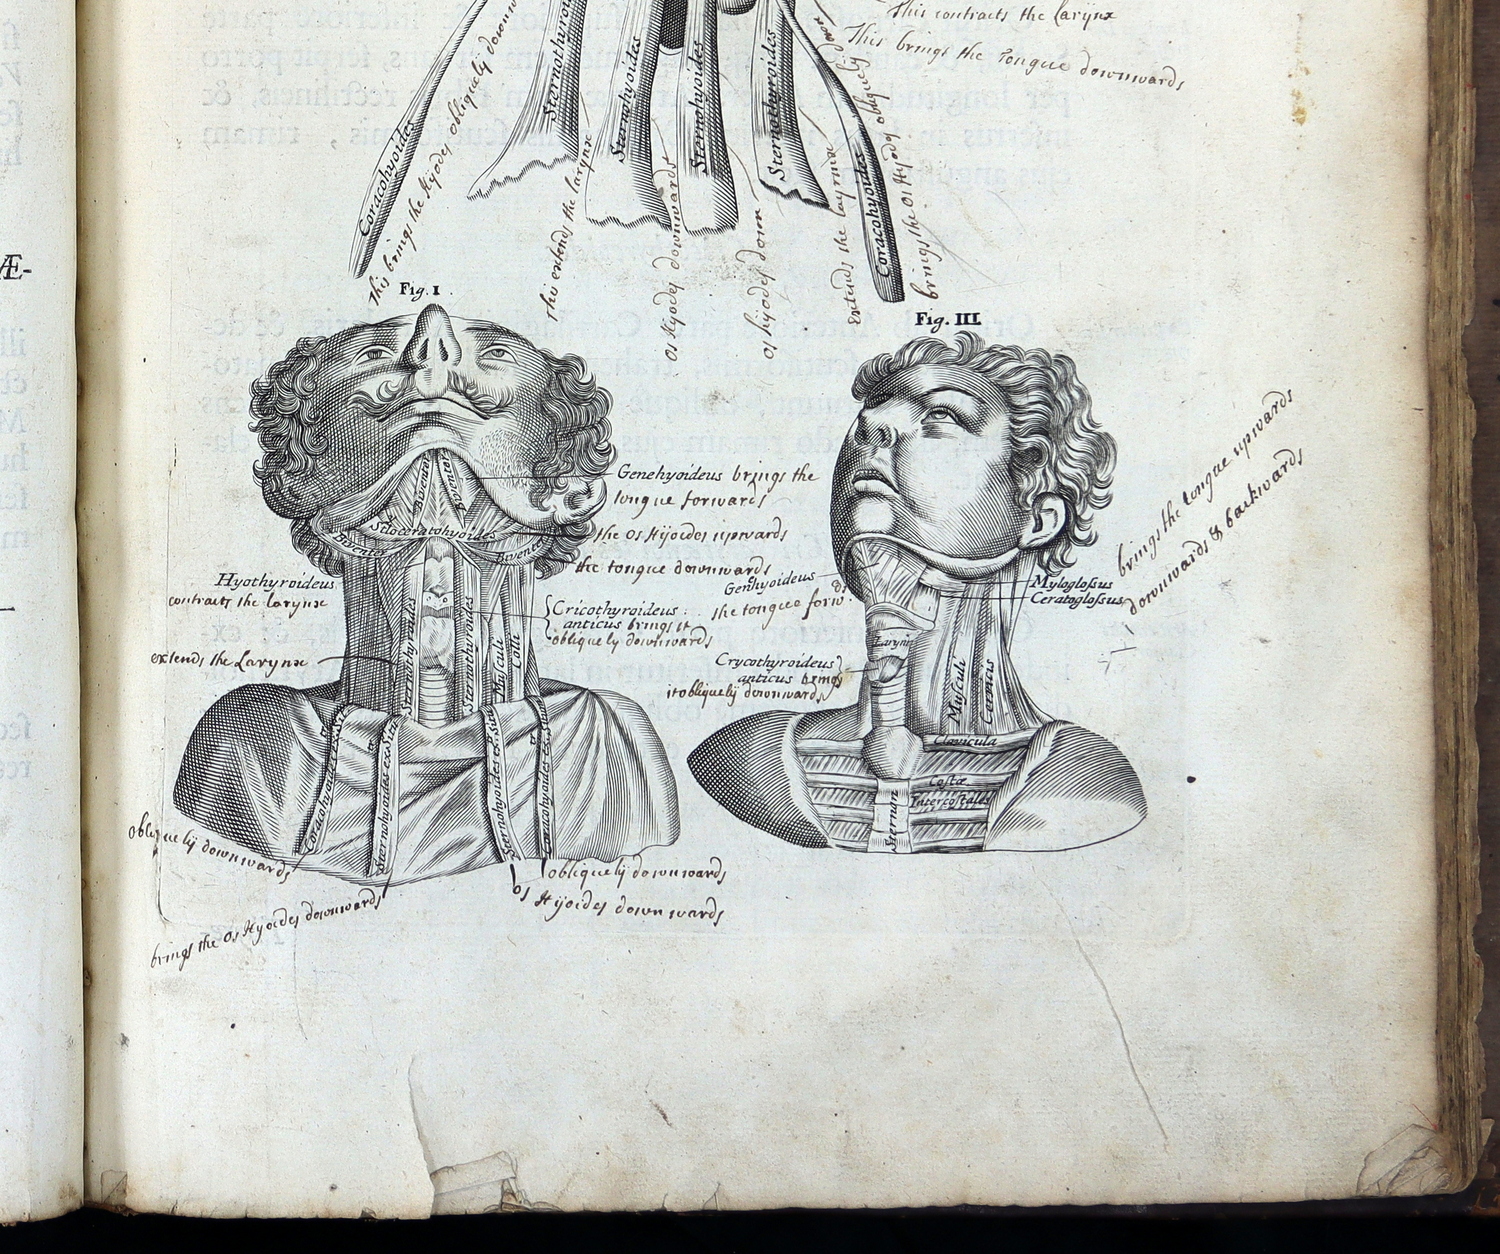 This contracts the larÿnx
This brings the tongue downwards
Sternothyroi
Sternohyoides
Sternohyoides
Sternothyroides
Coracohyoides
Coracohyoides
This brings the Hyodes obliquely downw
This extends the larynx
Os Hyodes downwards
Os hyodes down
Extends the larynx
brings the Os Hyodes obliquely down
Fig. I.
Fig. III.
Genehyoideus brings the
tongue forwards
the Os Hyoides upwards
the tongue downwards
Hyothyroideus
contracts the larynx
Cricothyroideus
anticus brings it
obliquely downwards
extends the Larynx
Sternothyroides
Sternothyroides
Musculi
Colli
Coracohyoides ex Situ
Sternohyoides ex Situ
Sternohyoides ex Situ
Coracohyoides ex Situ
Obliquely downwards
obliquely downwards
os Hyoides downwards
brings the Os Hyoides downwards
Genihyoideus
the tongue forw
Myloglossus
Ceratoglossus
brings the tongue upwards
downwards & backwards
Larynx
Crycothyroideus
anticus brings
it obliquely downwards
Musculi
Cervicis
Clavicula
Costæ
Intercostales
Sternum
Æ-